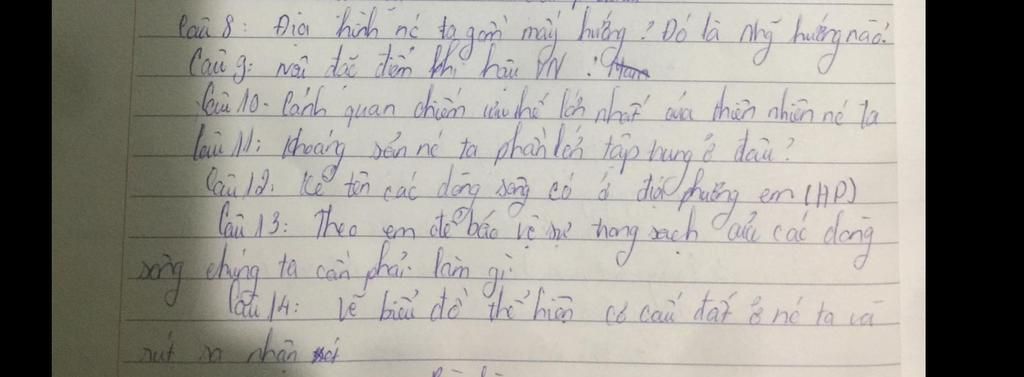 Câu 8: Địa hình nc ta gồm mấy hướng? Đó là nhg hướng nào?
Câu 9: Nêu đặc điểm khí hậu VN?
Câu 10. Cảnh quan chiếm ưu thế lớn nhất của thiên nhiên nc ta
Câu 11: Khoáng sản nc ta phần lớn tập trung ở đâu?
Câu 12. Kể tên các dòng sông có ở địa phương em (HP)
Câu 13: Theo em để bảo vệ sự trong sạch của các dòng
sông chúng ta cần phải làm gì
Câu 14: Vẽ biểu đồ thể hiện cơ cấu đất ở nc ta và
rút ra nhận xét